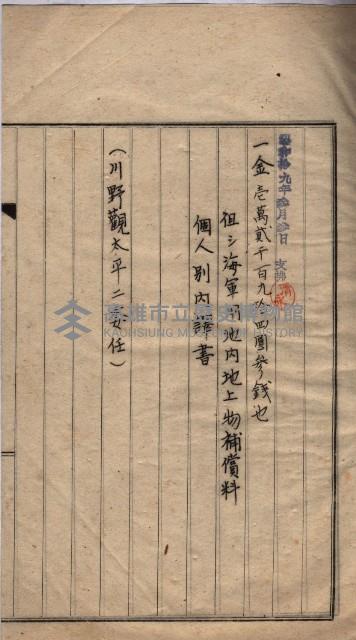 昭和拾九年 月 日 支拂
一金壱萬貳千百九拾四圓參錢也
但シ海軍用地内地上物補償料
個人別内譯書
(川野觀太平ニ委任)
高雄市立歷史博物館
KAOHSIUNG MUSEUM OF HISTORY